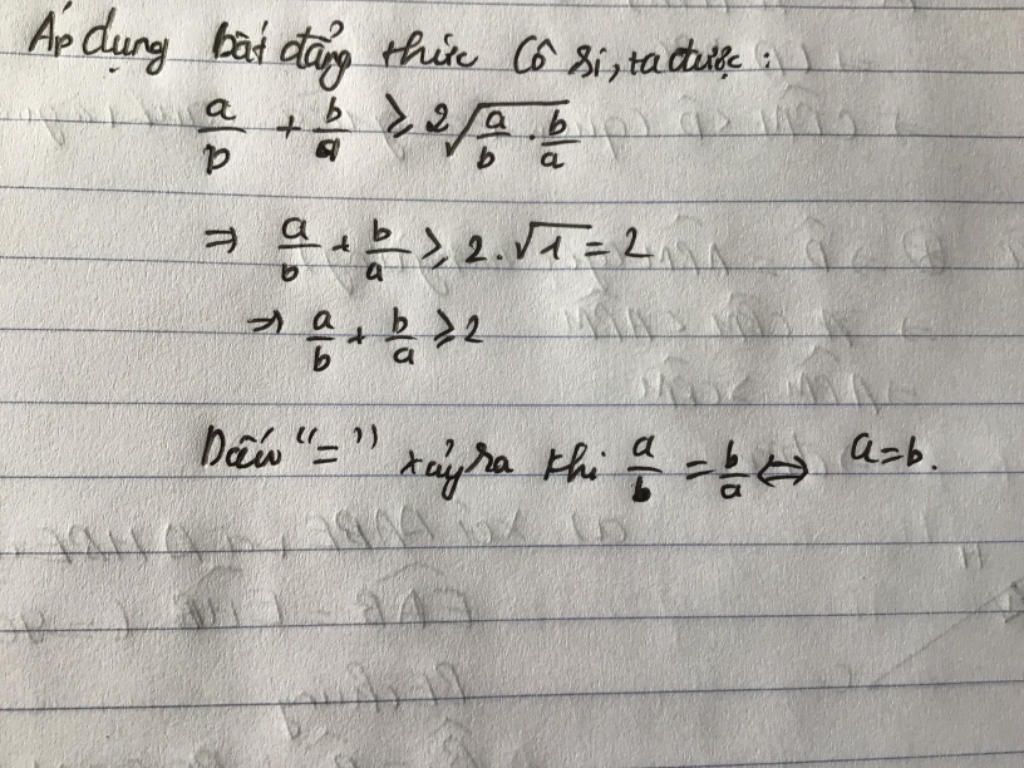 Áp dụng bất đẳng thức Cô si, ta được :
a/b + b/a ≥ 2√(a/b . b/a)
⇒ a/b + b/a ≥ 2.√1 = 2
⇒ a/b + b/a ≥ 2
Dấu "=" xảy ra khi a/b = b/a ⇔ a=b.